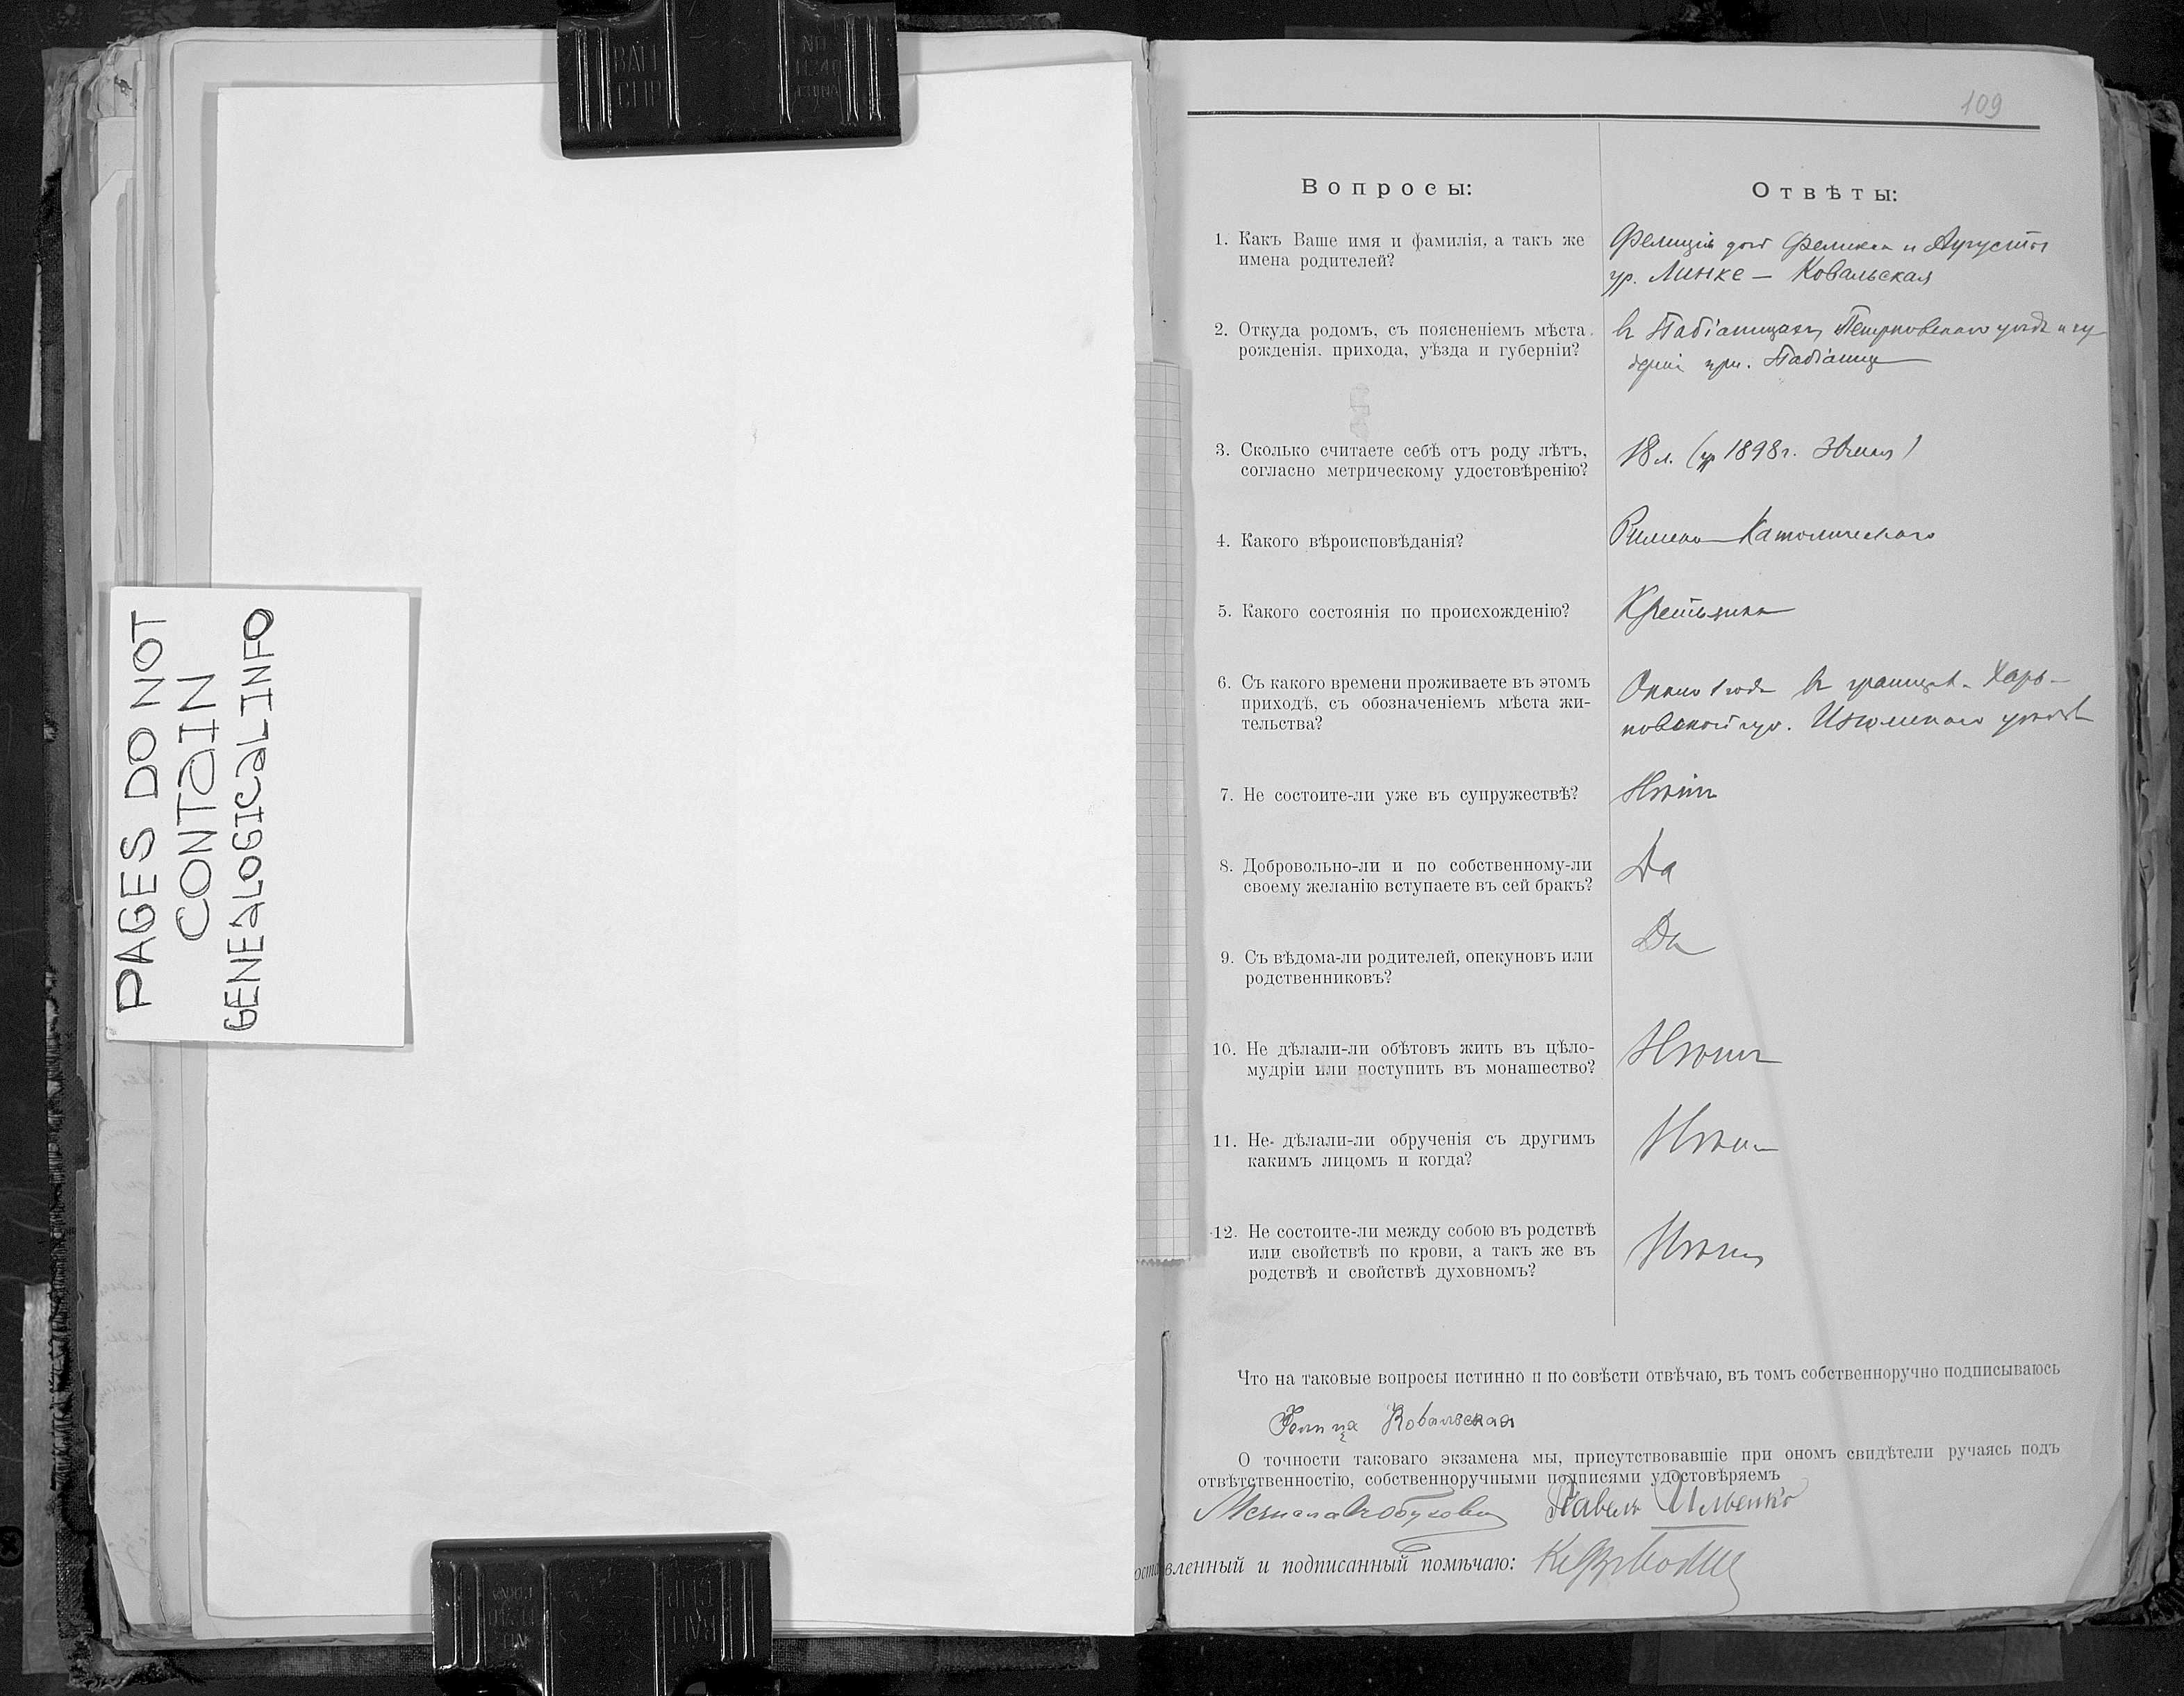 BALL CLIP
NO
1240
CHINA
PAGES DO NOT
CONTAIN
GENEALOGICAL INFO
109
Вопросы:
Отвѣты:
1. Какъ Ваше имя и фамилія, а такъ же
имена родителей?
Фелиція доч Феликса и Августы
ур. Линке — Ковальская
2. Откуда родомъ, съ поясненіемъ мѣста
рожденія, прихода, уѣзда и губерніи?
въ Пабіаницахъ, Петроковскаго уѣзда и гу-
берніи при. Пабіанице
3. Сколько считаете себѣ отъ роду лѣтъ,
согласно метрическому удостовѣренію?
18 л. (ур 1898 г.
4. Какого вѣроисповѣданія?
Римско-Католическаго
5. Какого состоянія по происхожденію?
Крестьянка
6. Съ какого времени проживаете въ этомъ
приходѣ, съ обозначеніемъ мѣста жи-
тельства?
Около 1 года въ Харь-
ковской губ. Изюмскаго уѣзда
7. Не состоите-ли уже въ супружествѣ?
Нѣтъ
8. Добровольно-ли и по собственному-ли
своему желанію вступаете въ сей бракъ?
Да
9. Съ вѣдома-ли родителей, опекуновъ или
родственниковъ?
Да
10. Не дѣлали-ли обѣтовъ жить въ цѣло-
мудріи или поступить въ монашество?
Нѣтъ
11. Не дѣлали-ли обрученія съ другимъ
какимъ лицомъ и когда?
Нѣтъ
12. Не состоите-ли между собою въ родствѣ
или свойствѣ по крови, а такъ же въ
родствѣ и свойствѣ духовномъ?
Нѣтъ
Что на таковые вопросы истинно и по совѣсти отвѣчаю, въ томъ собственноручно подписываюсь
Ковальская
О точности таковаго экзамена мы, присутствовавшіе при ономъ свидѣтели ручаясь подъ
отвѣтственностію, собственноручными подписями удостовѣряемъ
Павелъ Ильенко
вленный и подписанный помѣчаю: